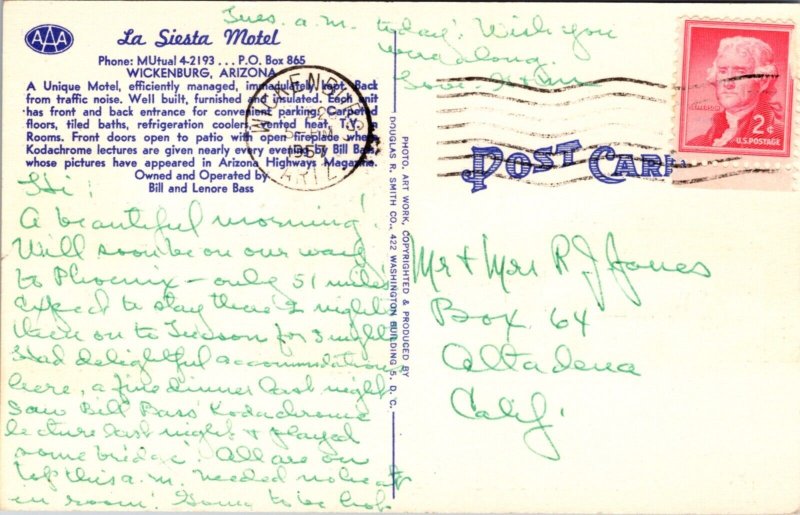 AAA
La Siesta Motel
Phone: MUtual 4-2193 ... P.O. Box 865
WICKENBURG, ARIZONA
A Unique Motel, efficiently managed, immaculately kept. Back
from traffic noise. Well built, furnished and insulated. Each unit
has front and back entrance for convenient parking. Carpeted
floors, tiled baths, refrigeration cooler, vented heat, T.V.
Rooms. Front doors open to patio with open fireplace where
Kodachrome lectures are given nearly every evening by Bill Bass,
whose pictures have appeared in Arizona Highways Magazine.
Owned and Operated by
Bill and Lenore Bass
Hi!
A beautiful morning!
Will soon be on our way
to Phoenix - only 51 miles
expect to stay there 2 nights
then on to Tucson for 3 nights
Had delightful accommodations
here, a fine dinner last night
Saw Bill Bass' Kodachrome
lecture last night & played
some bridge. All are on
top this a.m. needed no heat
in room! Going to be hot
Tues. a.m. today! Wish you
were along.
Love
WICKENBURG
ARIZ.
PHOTO, ART WORK, COPYRIGHTED & PRODUCED BY
DOUGLAS R. SMITH CO., 422 WASHINGTON BUILDING 5, D. C.
POST CARD
JEFFERSON
2¢
U.S. POSTAGE
Mr & Mrs R J Jones
Box 64
Altadena
Calif.